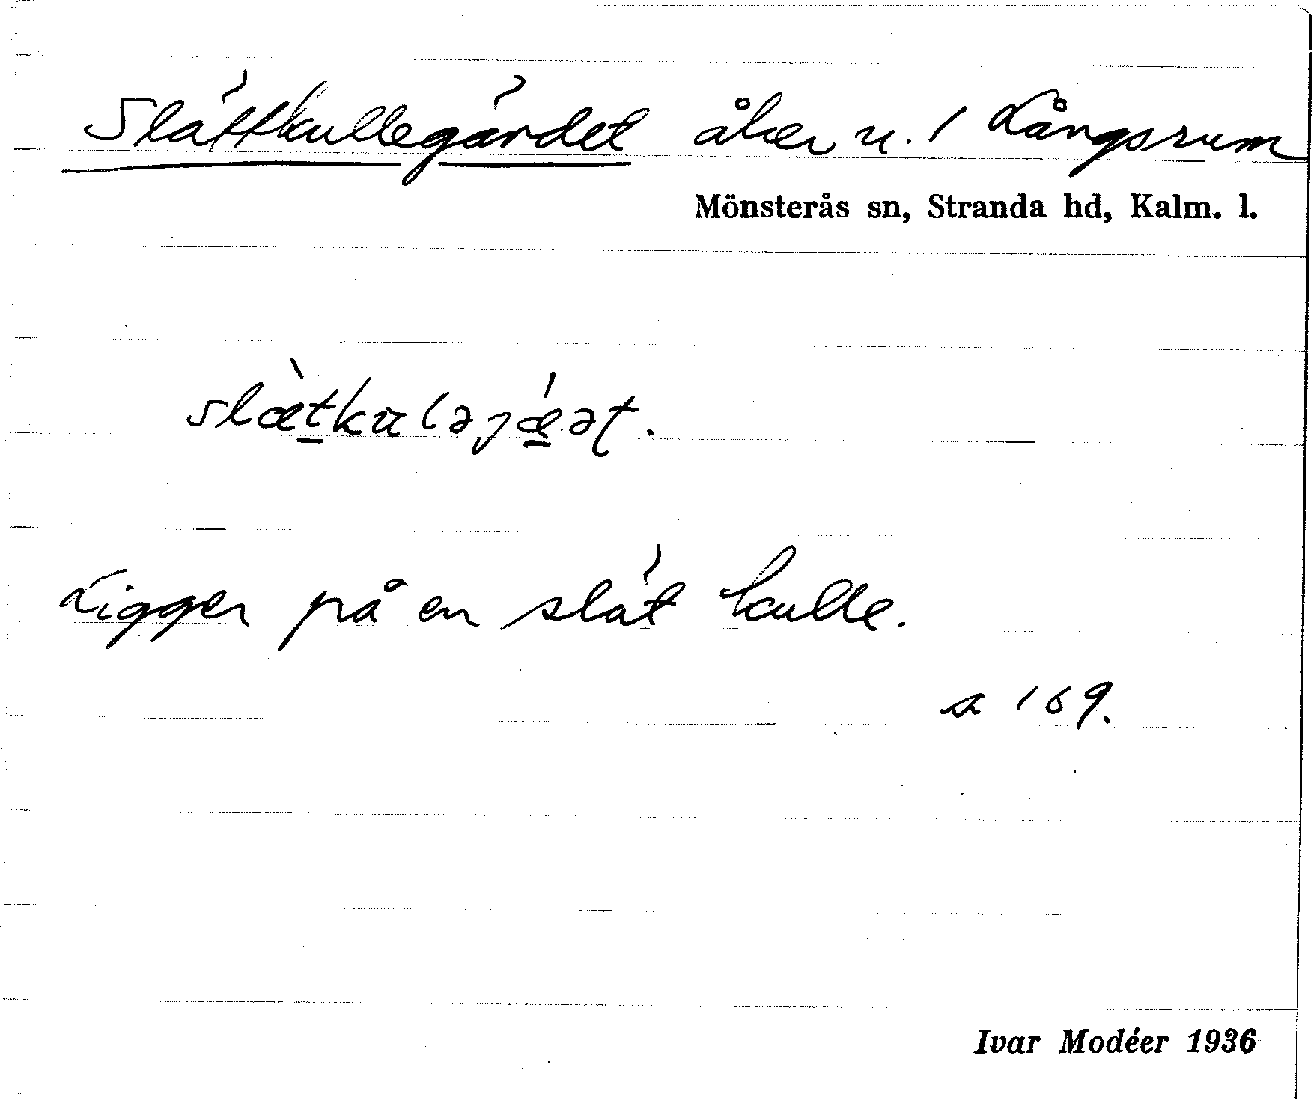 Slättkullegärdet åker n. 1 Långsrum
Mönsterås sn, Stranda hd, Kalm. l.
Ligger på en slät kulle.
a 169.
Ivar Modéer 1936